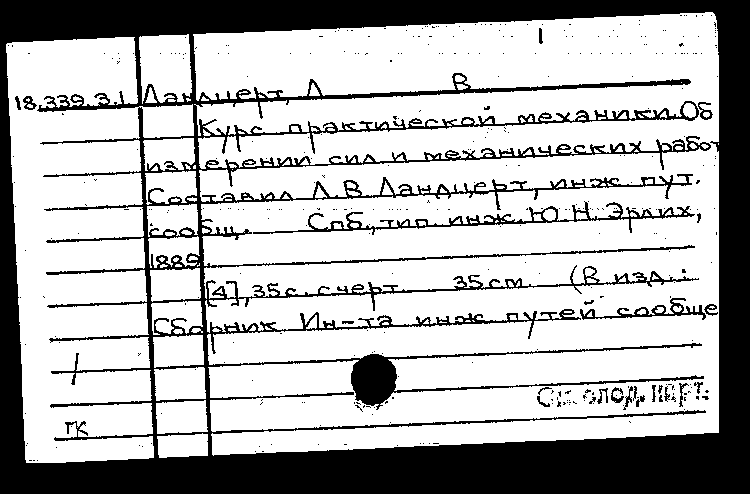 18.339.3.1 Ландцерт, Л В
Курс практической механики. Об
измерении сил и механических работ
Составил Л.В Ландцерт, инж пут.
сообщ. Спб., тип инж. Ю.Н. Эрлих,
1889.
[4], 35с. с черт. 35 cm (В изд.:
Сборник Ин-та инж путей сообще
См. след. карт.
ГК